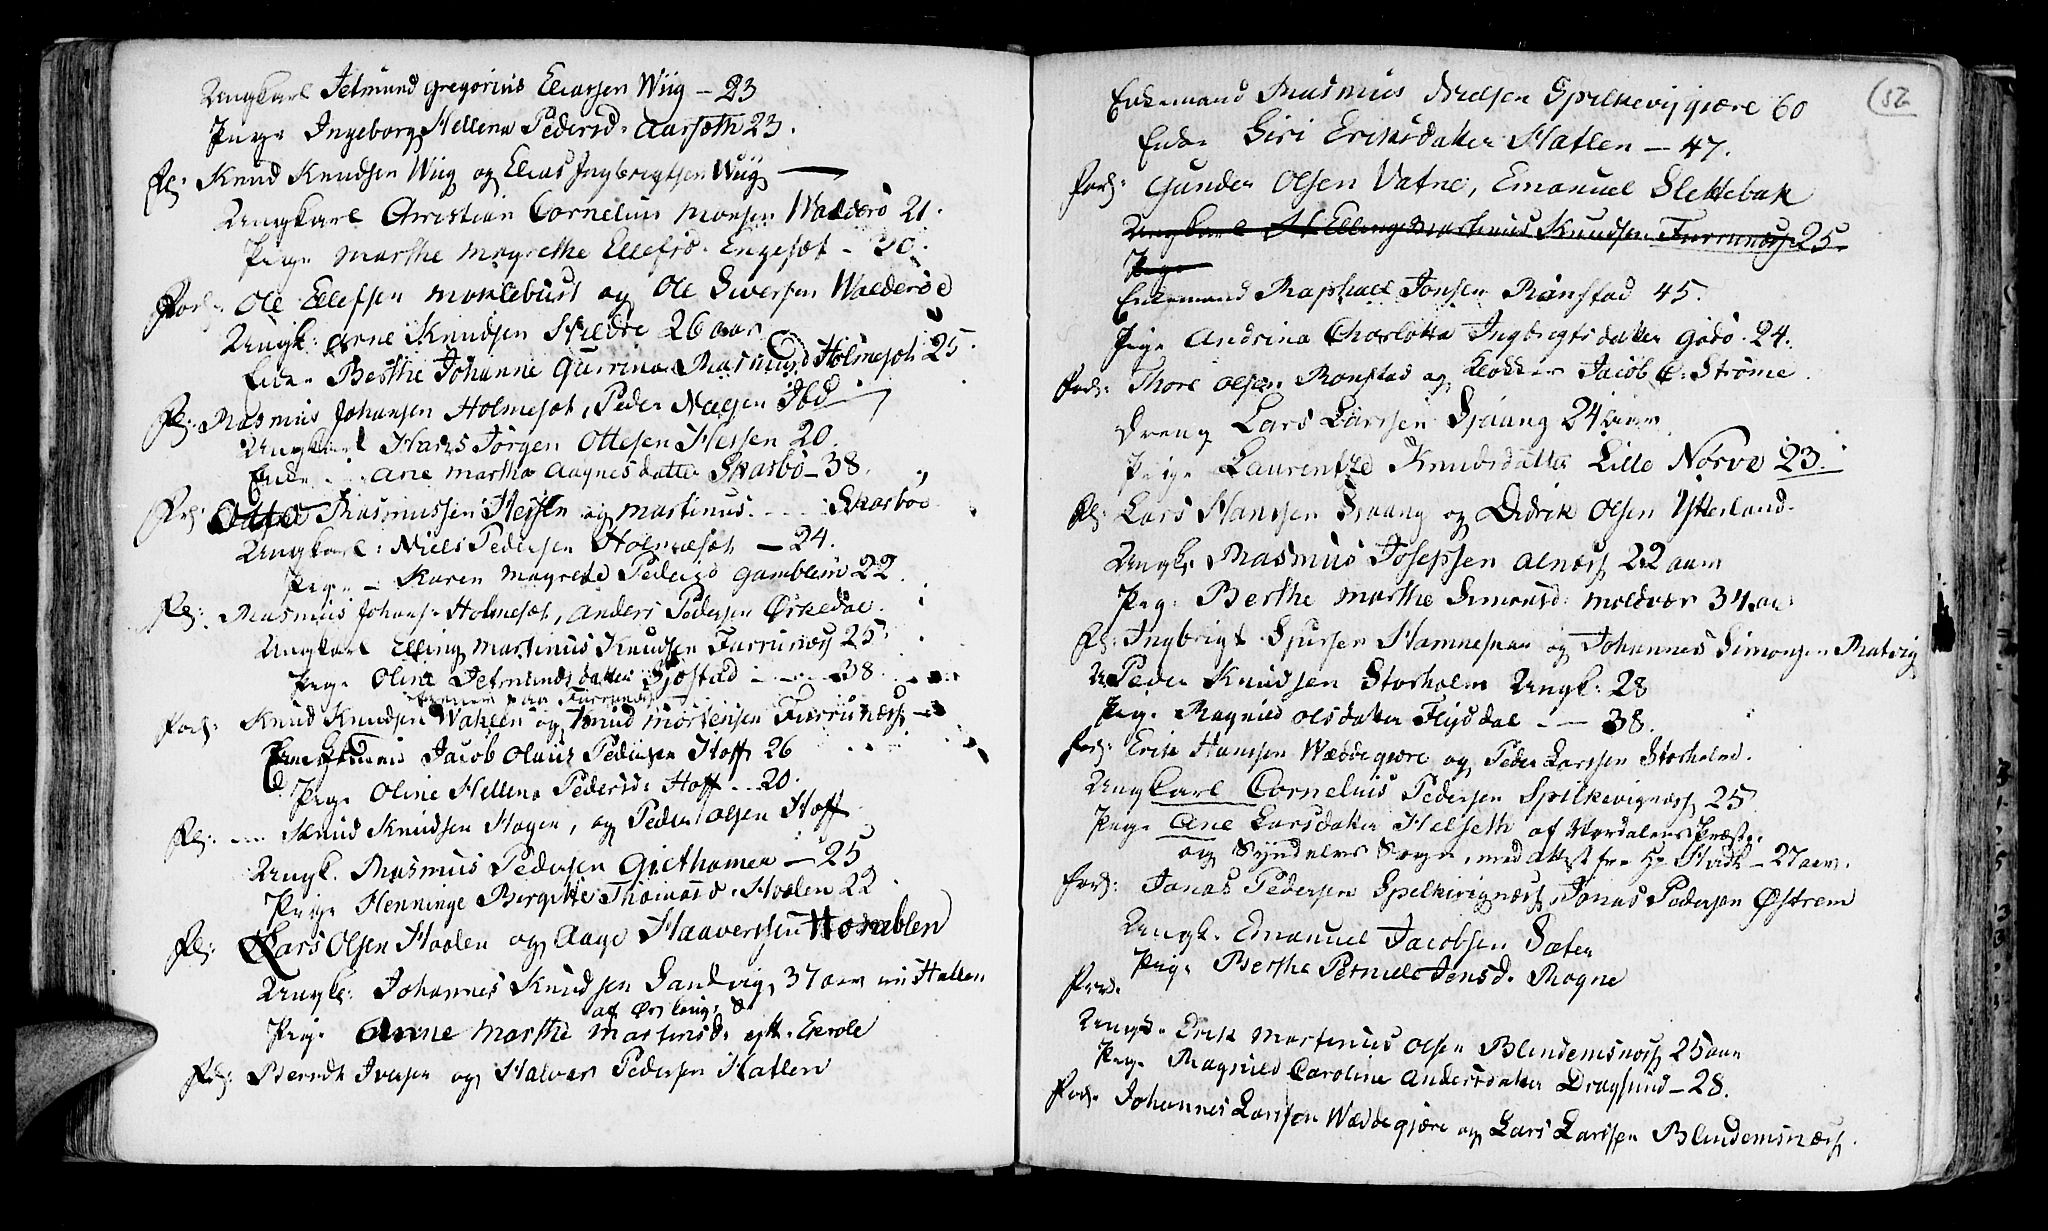 Ungkarl Jetmund Gregorius Eliassen Wiig – 23
Pige Ingeborg Hellena Pedersd: Aarseth 23.
Fl: Knud Knudsen Wiig og Elias Ingbrigtsen Wiig
Ungkarl Christian Cornelius Monsen Walderö 21.
Pige Marthe Magrethe Ellefsd. Engeset – 30.
Forl: Ole Ellefsen Moklebust og Ole Siversen Walderöe
Ungk: Arne Knudsen Hildre 26 aar
Enke Berthe Johanne Gurrina Rasmusd Holmeset 25.
Fl: Rasmus Johansen Holmeset, Peder Nielsen Ibd
Ungkarl Hans Jörgen Ottesen Hessen 20.
Enke ... Ane Martha Aagnesdatter Skarbö – 38.
Fl: Rasmussen Hessen og Martinus ..... Skarböe
Ungkarl: Niels Pedersen Holmeset – 24.
Pige – Karen Magrete Pedersd Gamblem 22.
Fl: Rasmus Johans: Holmeset, Anders Pedersen Örskedal.
Ungkarl Elling Martinus Knudsen Furrunæs 25.
Pige Oline Jetmundsdatter Sjöstad – – – 38.
tiener paa Furrunæs
Forl: Knud Knudsen Wahlen og Knud Mortensen Furrunæss
Jacob Olaus Pedersen Hoff 26
Pige Oline Hellena Pedersd: Hoff .. 20.
Fl: .... Knud Knudsen Hagen, og Peder Olsen Hoff
Ungk. Rasmus Pedersen Giethamer – 25
Pige Henninge Birgitte Thomasd. Hoelen 22.
Fl: Lars Olsen Hoelen og Aage Haaversen
Ungk: Johannes Knudsen Sandvig, 37 aar Hatlen
af Örskoug
Pige Anne Marthe Martinsd.
Fl: Berndt Iversen og Halver Pedersen Hatlen
52
Enkemand Rasmus Spilkeviggiære 60
Enke Siri Eriksdatter Hatlen – 47.
Forl: Gunder Olsen Vatne, Emanuel Slettebak
Ungkarl Elling Martinus Knudsen Furrunæss 25.
Pige
Enkemand Raphael Jonsen Rönstad 45.
Pige Andrina Charlotta Ingbrigtsdatter Godö. 24.
Forl: Thore Olsen Rönstad og Klokker Jacob C: Ströme.
Dreng Lars Larssen Spiaung 24 aar
Pige Laurentze Knudsdatter Lille Nörve 23.
Fl: Lars Hanssen Spiaung og Didrik Olsen Ytterland.
Ungk. Rasmus Josepsen Alnæss 22 aar
Pige Berthe Marthe Simonsd: Moldvær 34 aar
Fl: Ingbrigt Sjursen Hamnesvær og Johannes Simonsen Ratvig
Peder Knudsen Storholm Ungk: 28
Pige Ragnild Olsdatter Flysdal – – 38.
Forl: Erik Hanssen Wæddegiære og Peder Larssen Storholm.
Ungkarl Cornelius Pedersen Spilkevignæss 25
Pige Ane Larsdatter Helseth af Nordalens Præste-
og Syndalens Sogn, med attest fra Hr – 27 aar.
Forl: Jonas Pedersen Spilkevignæss, Jonas Pedersen Östrem
Ungk. Emanuel Jacobsen Sæter
Pige Berthe Pernille Jensd. Rogne
Forl.
Ungk. Erik Martinus Olsen Blindemsnæss 25 aar
Pige Ragnild Caroline Andersdatter Dragsund – 28.
Forl. Johannes Larssen Wæddegiære og Lars Larssen Blindemsnæss.